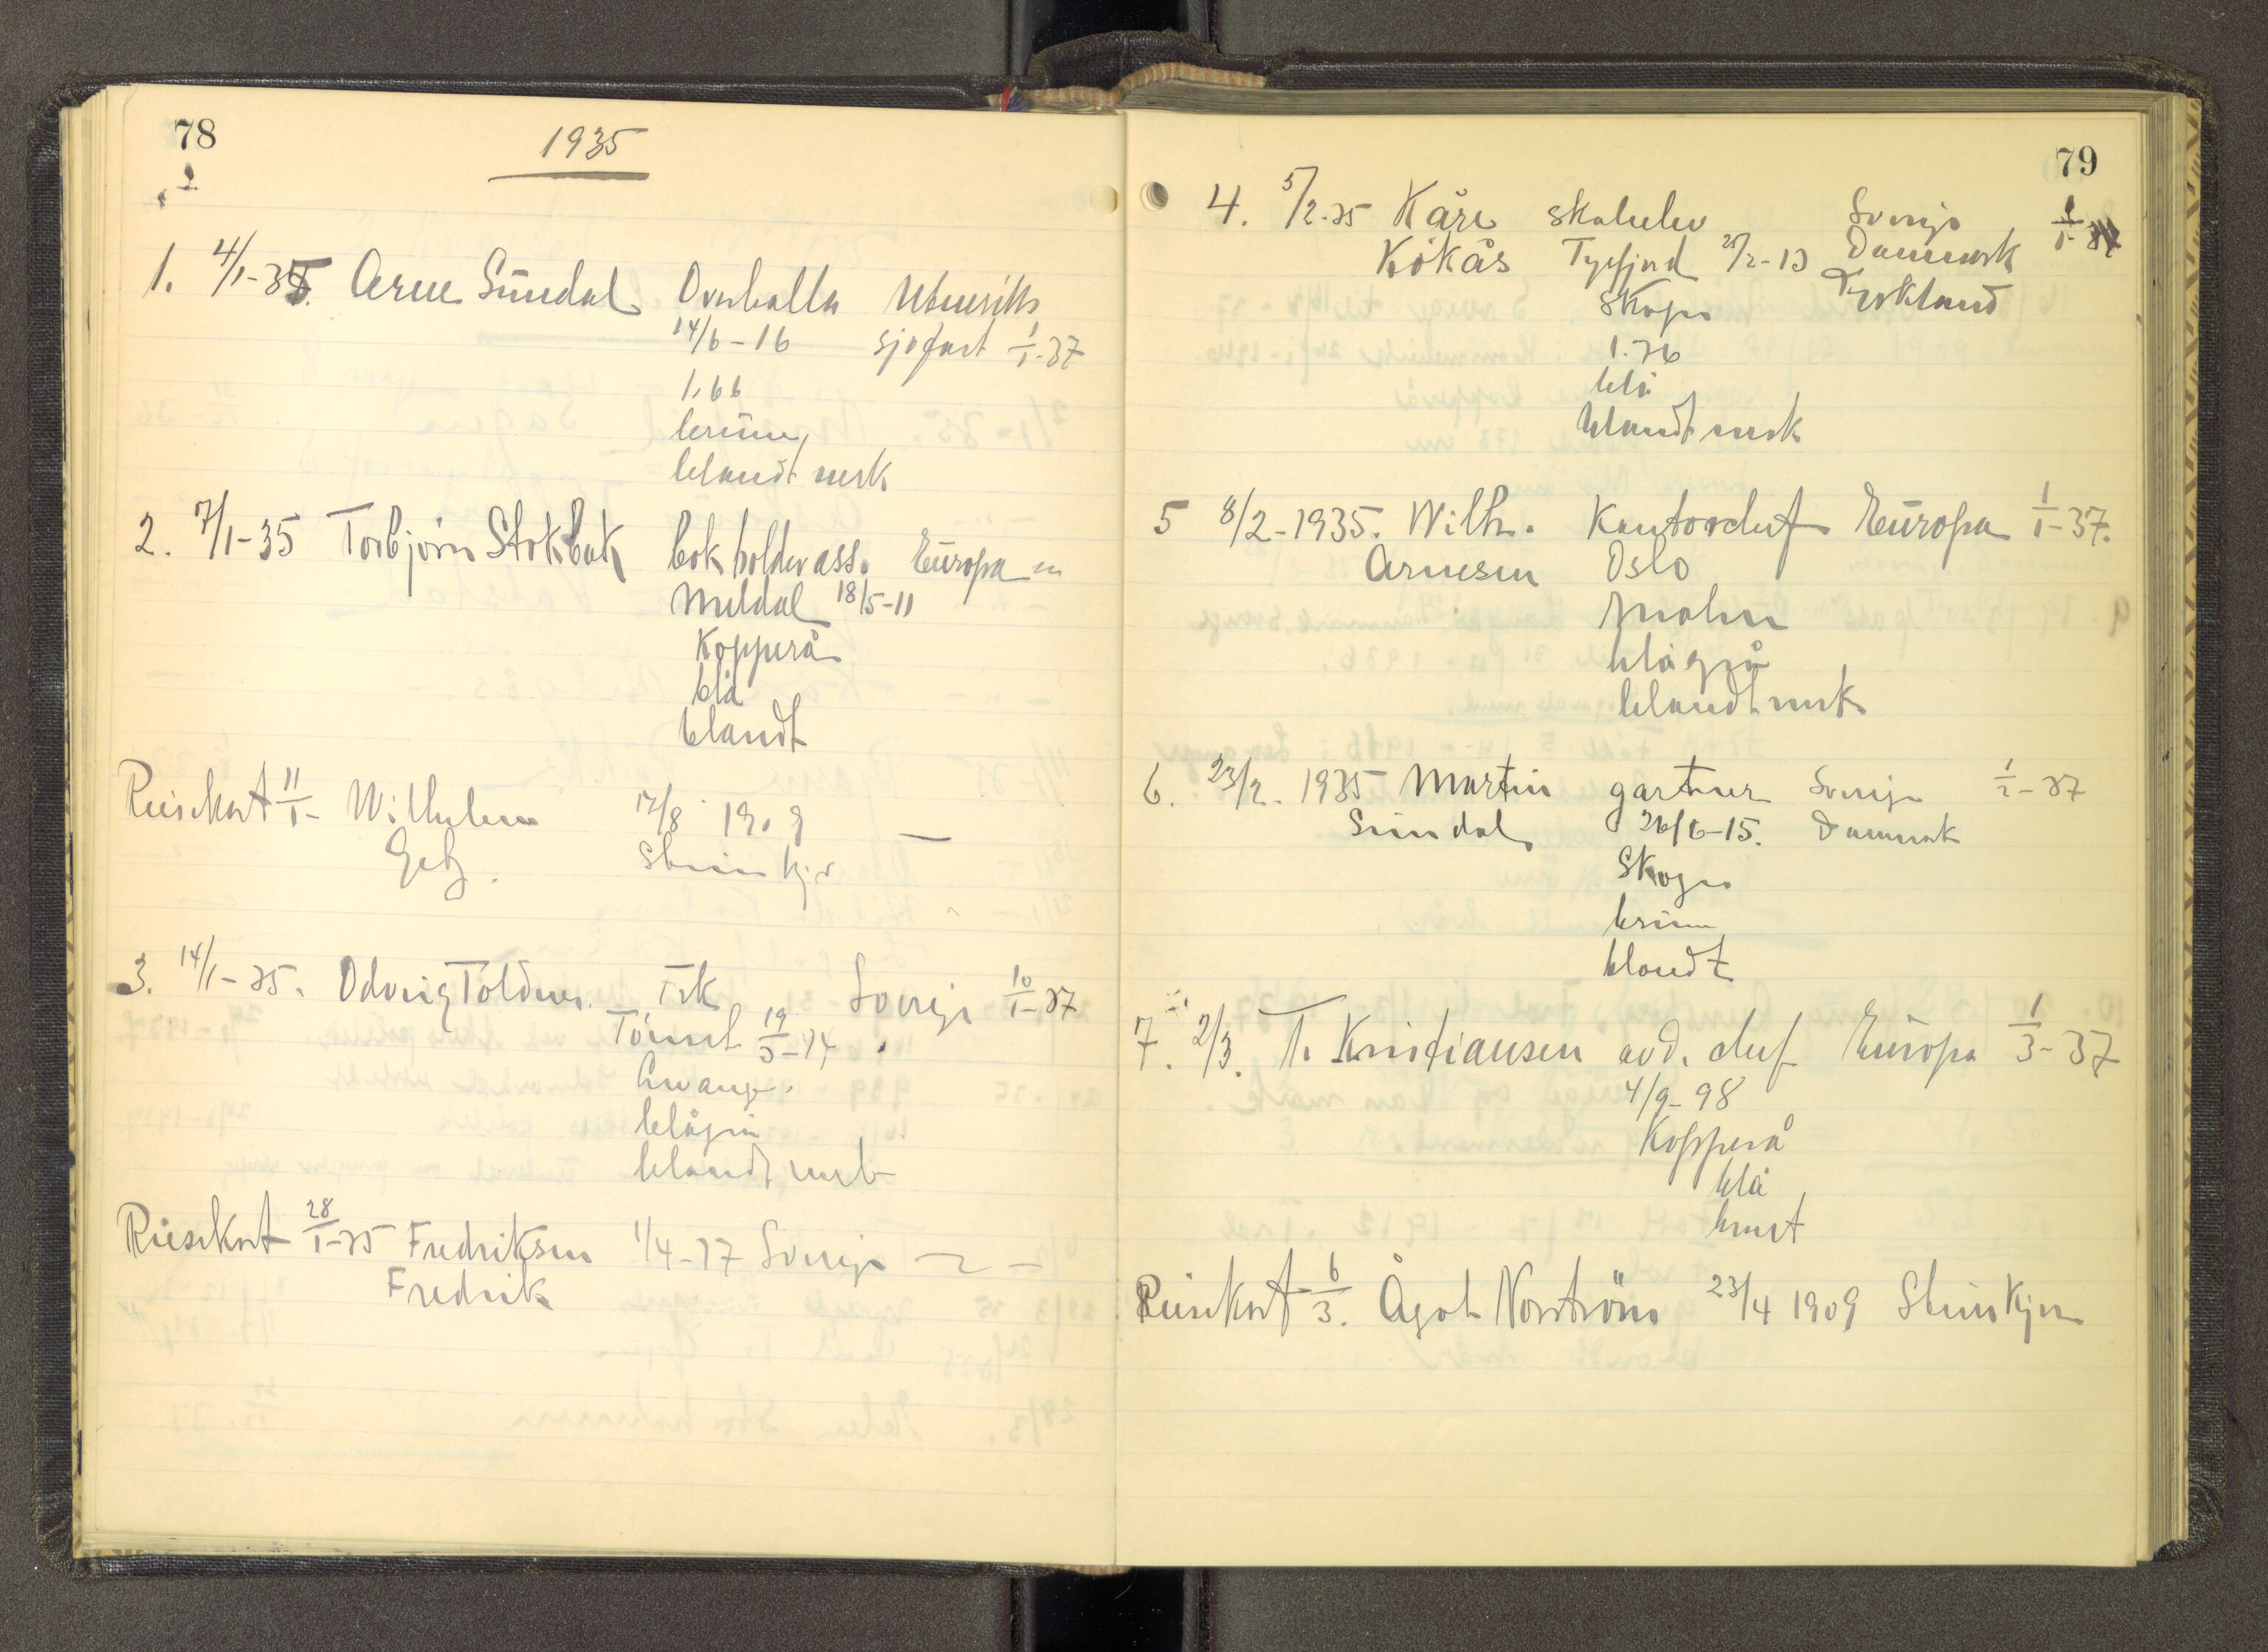 78
1935
1. 4/1-35. Arne Sündal Overhalla Utenriks
14/6-16 sjøfart 1/1-37
1,66
brune
blandt mrk
2. 7/1-35 Torbjørn Stokbak bokholder ass. Europa
Meldal 18/5-11
Kopperå
blå
blandt
Reisekort 11/1- Wilhelm 12/8 1909 —
Getz. Steinkjer
3. 14/1-35. Odveig Toldnes. Frk Sverige 10/1-37
Tönset 19/3-14
Levanger.
blågrå
blandt mrk
Reisekort 28/1-35 Fredriksen 1/4-17 Sverige
Fredrik
79
4. 5/2-35 Kåre skoleelev Sverige
Kökås 2-13 Danmark
Skogn Tyskland
1.76
blå
blandt mrk
5 8/2-1935. Wilh. Kontorchef Europa 1/1-37.
Arnesen Oslo
blågrå
blandt mrk
6. 23/2. 1935 Martin gartner Sverige 1/2-37
Sündal 26/6-15. Danmark
Skogn
brune
blandt
7. 2/3. T. Kristiansen avd. chef Europa 1/3-37
4/9-98
Kopperå
blå
brunt
Reisekort 6/3. Ågot Norström 23/4 1909 Steinkjer